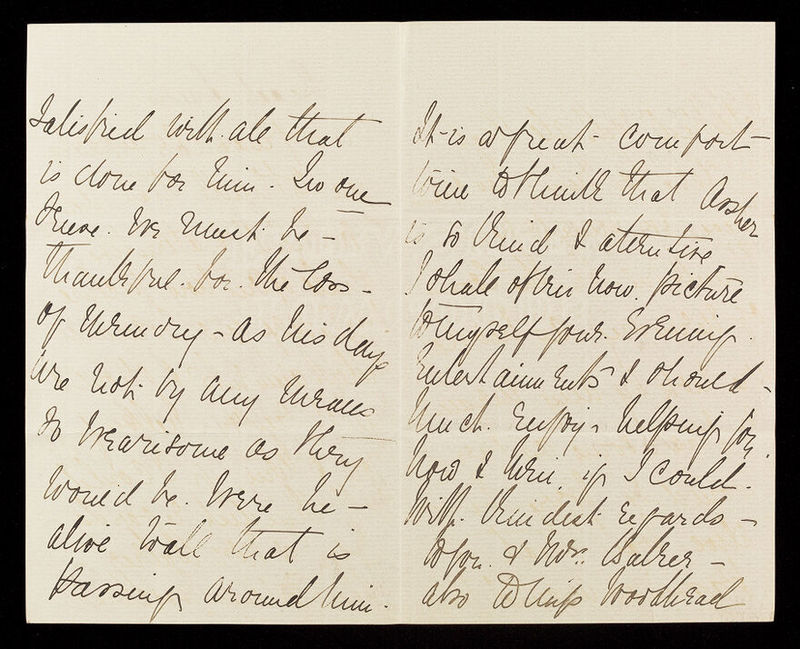 satisfied with all that
is done for him. In one
sense. We must be –
thankful. for. the loss –
of memory – as his days
are not by any means
so wearisome as they
would be. were he –
alive to all that is
passing around him.
It is a great comfort –
to me to think that
is so kind & attentive
I shall often now. picture
to myself your. Evening.
Entertainments & should –
much. enjoy – helping you
now & then, if I could.
With. kindest regards –
to you. & Mr.
also to Miss Woodhead